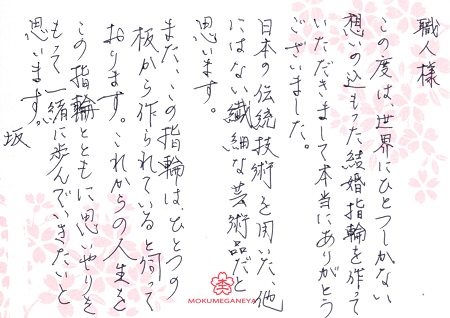 職人様
この度は、世界にひとつしかない
想いの込もった結婚指輪を作って
いただきまして本当にありがとう
ございました。
日本の伝統技術を用いた、他
にはない繊細な芸術品だと
思います。
また、この指輪は、ひとつの
板から作られていると伺って
おります。これからの人生を
この指輪とともに思いやりを
もって一緒に歩んでいきたいと
思います。
坂
MOKUMEGANEYA